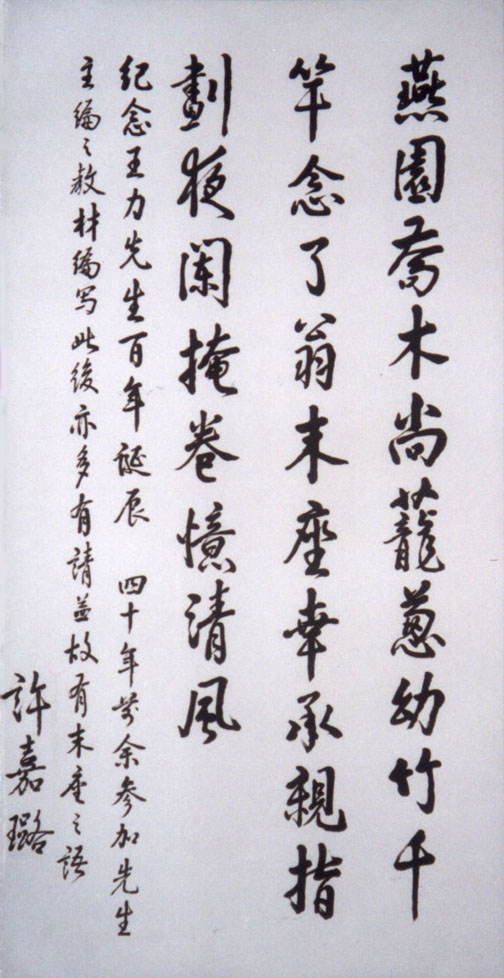 燕園喬木尚蘢蔥幼竹千
竿念了翁末座幸承親指
劃夜闌掩卷憶清風
紀念王力先生百年誕辰 四十年前余参加先生
主编之教材编写此後亦多有請益故有末座之語
許嘉璐